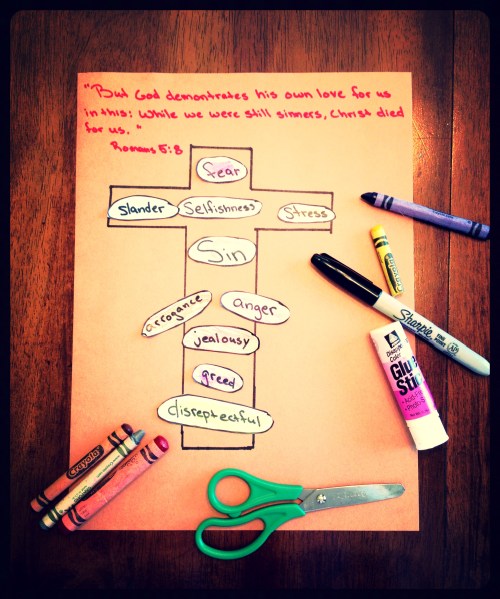 "But God demontrates his own love for us
in this: While we were still sinners, Christ died
for us."
Romans 5:8
fear
Slander Selfishness Stress
Sin
arrogance anger
jealousy
greed
disreptectful
Crayola
Sharpie
FINE POINT
Glue
Stick
Crayola